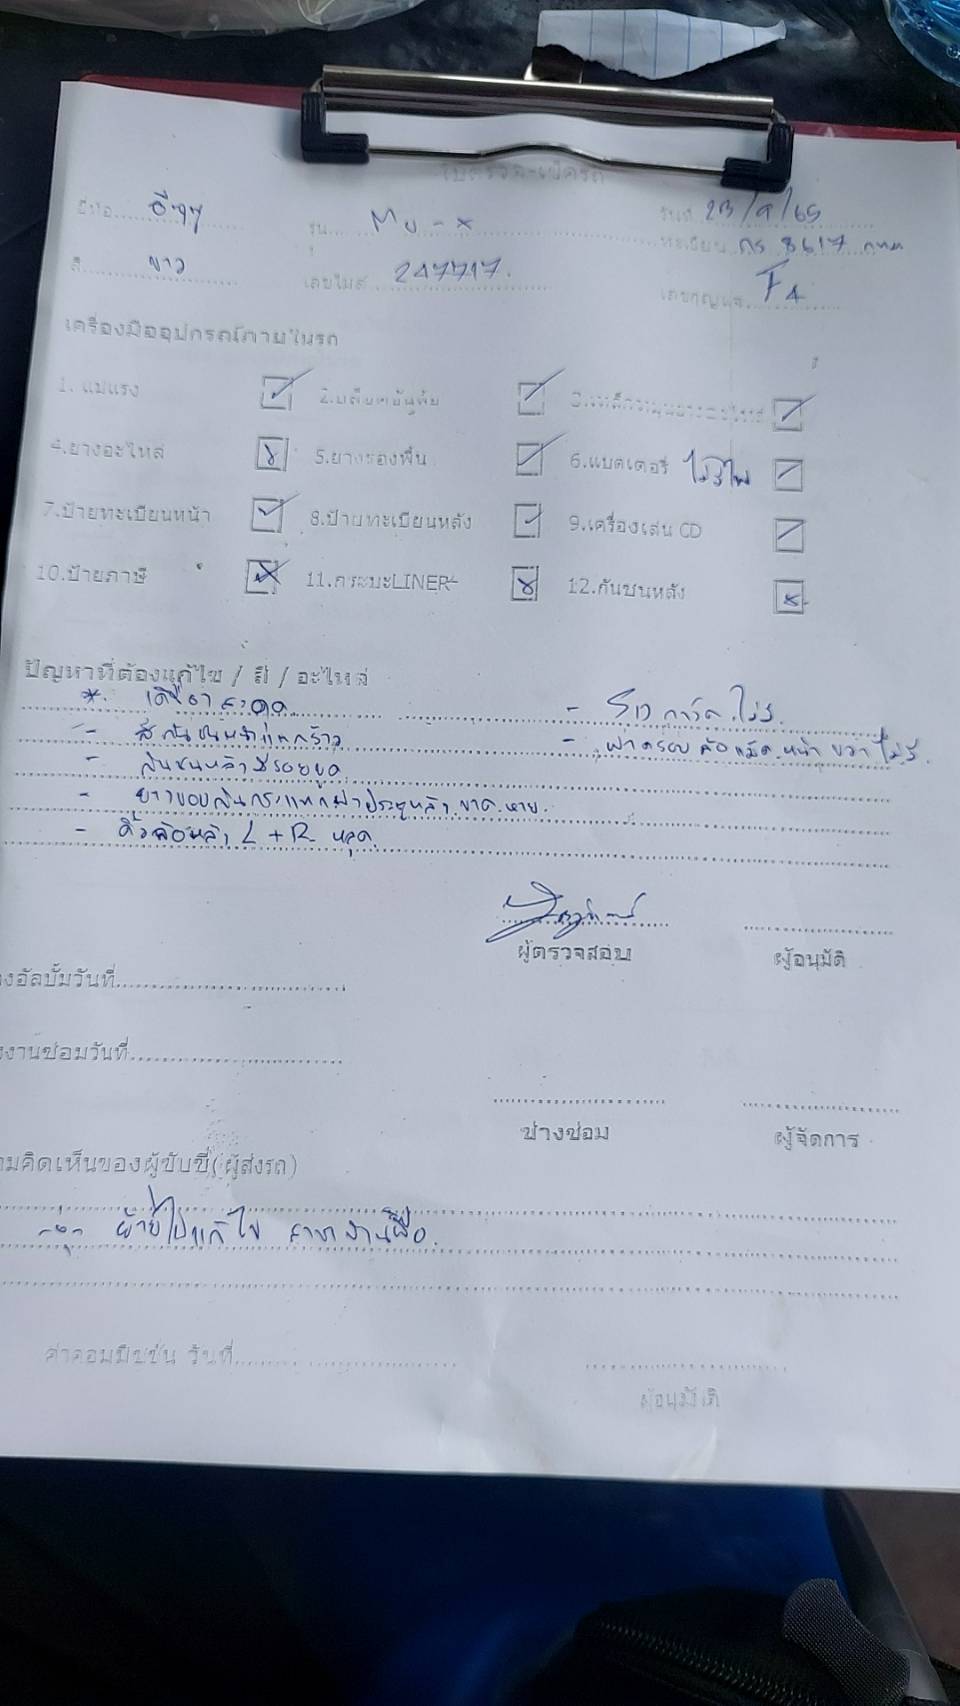 ใบตรวจ-เช็ครถ
ยี่ห้อ อีซูซุ รุ่น Mu-x วันที่ 23/9/65
ทะเบียน 8617 กทม
สี ขาว เลขไมล์ 247717. เลขกุญแจ F4
เครื่องมืออุปกรณ์ภายในรถ
1. แม่แรง 2.บล็อคขันล้อ
4.ยางอะไหล่ 5.ยางรองพื้น 6.แบตเตอรี่ ไม่มีไฟ
7.ป้ายทะเบียนหน้า 8.ป้ายทะเบียนหลัง 9.เครื่องเล่น CD
10.ป้ายภาษี 11.กระบะLINER 12.กันชนหลัง
ปัญหาที่ต้องแก้ไข / สี / อะไหล่
* สะดุด - การ์ด ไม่มี
- สีกันชนหน้าแตกร้าว - ฝาครอบล้อแม็ค หน้า ขวา ไม่มี
- กันชนหลังมีรอยขูด
- ยางขอบ ประตูหลัง ขาด หาย
- คิ้วล้อหลัง L + R หลุด
ผู้ตรวจสอบ ผู้อนุมัติ
งอัลบั้มวันที่
งานซ่อมวันที่
ช่างซ่อม ผู้จัดการ
ามคิดเห็นของผู้ขับขี่(ผู้ส่งรถ)
ย้ายไปแก้ไข สาขา
ค่าคอมมิชชั่น วันที่
ผู้อนุมัติ